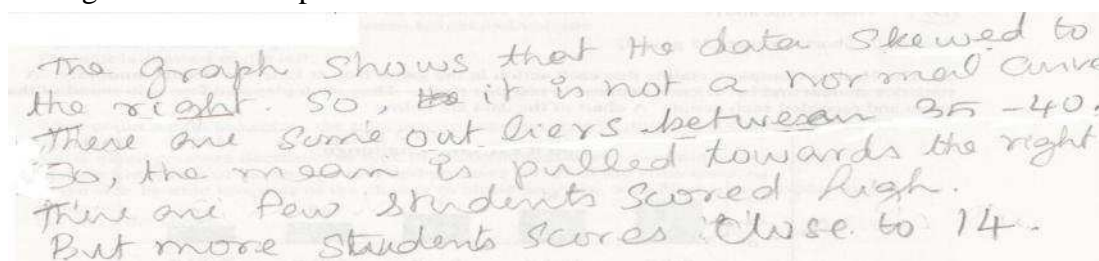 The graph shows that the data skewed to
the right. So, it is not a normal curve
There are some outliers between 35-40.
So, the mean is pulled towards the right
There are few students scored high.
But more students scores close to 14.